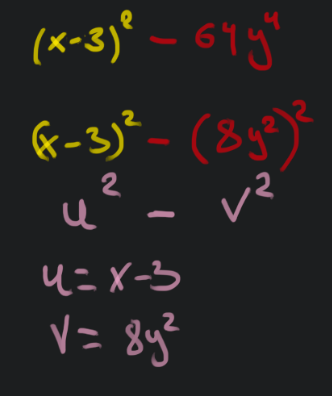 (x-3)² - 64y⁴
(x-3)² - (8y²)²
u² - v²
u = x-3
v = 8y²